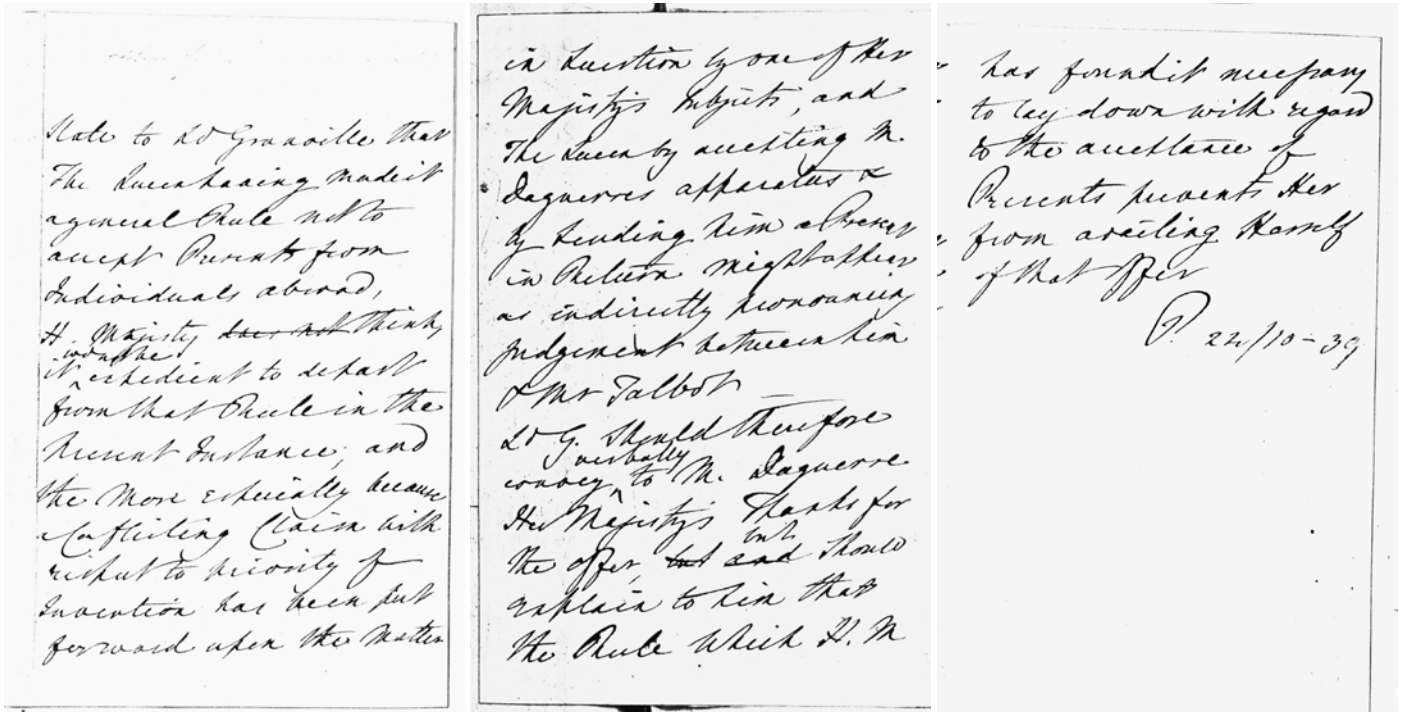 State to Ld Granville that
The Queen having made it
a general Rule not to
accept Presents from
Individuals abroad,
H. Majesty does not thinks
would be
it expedient to depart
from that Rule in the
Present Instance, and
the more especially because
a Conflicting Claim with
respect to priority of
Invention has been put
forward upon the Matter
in Question by one of Her
Majesty's Subjects, and
The Queen by accepting M.
Daguerres apparatus &
by sending him a Present
in Return might appear
as indirectly pronouncing
judgement between him
& Mr Talbot —
Ld G. should therefore
verbally
convey to M. Daguerre
Her Majesty's Thanks for
but
the offer, but and should
explain to him that
the Rule which H. M
has found it necessary
to lay down with regard
to the acceptance of
Presents prevents Her
from availing Herself
of that offer
P. 22/10-39